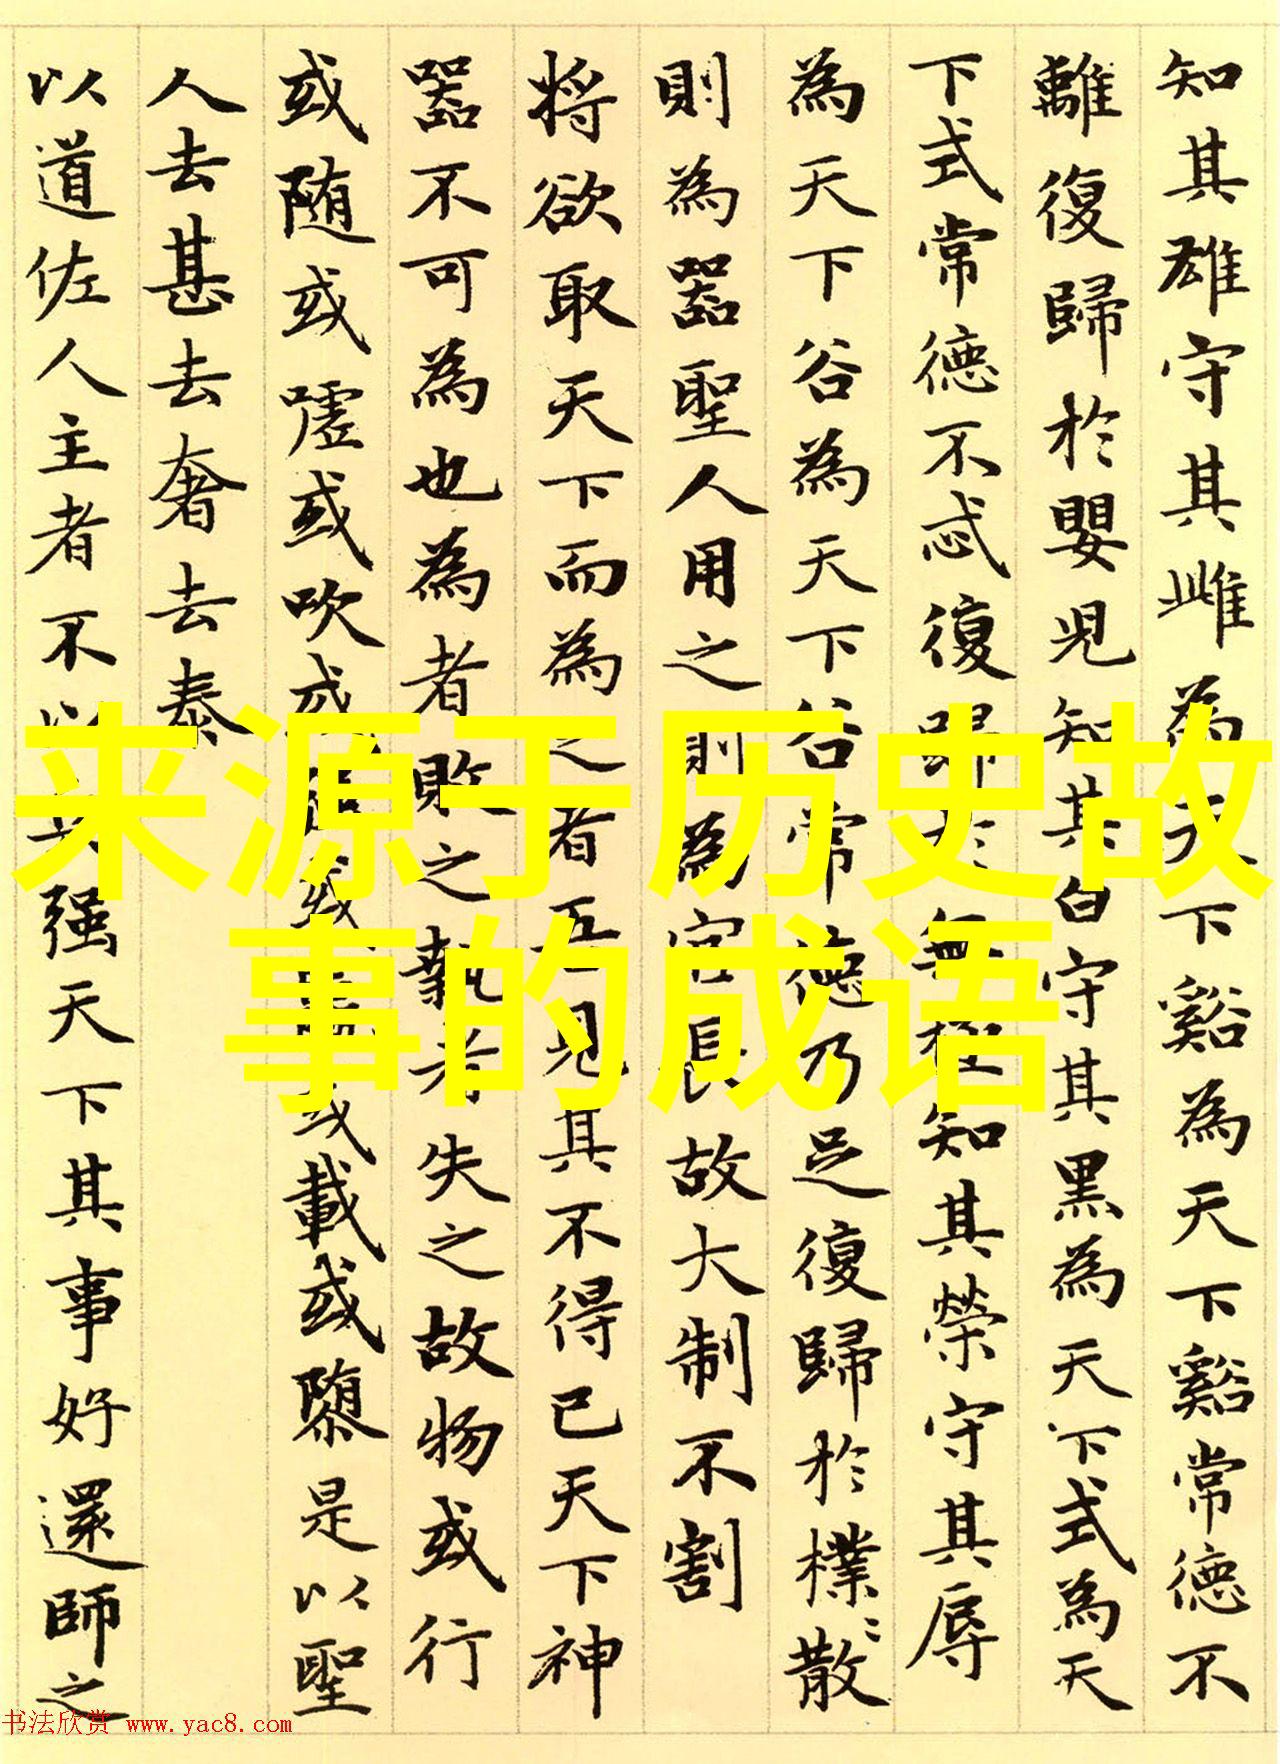 知其雄守其雌為天下谿為天下谿常德不
離復歸於嬰児知其白守其黒為天下式為天
下式常德不忒復歸於無極知其榮守其辱
為天下谷為天下谷常德乃足復歸於樸〻散
則為器聖人用之則為官長故大制不割
将欲取天下而為之者吾見其不得已天下神
器不可為也為者敗之執者失之故物或行
或随或嘘或吹或強或羸或載或隳是以聖
人去甚去奢去泰
以道佐人主者不以兵强天下其事好還師之
来源于历史故
事的成语
书法欣赏 www.yac8.com